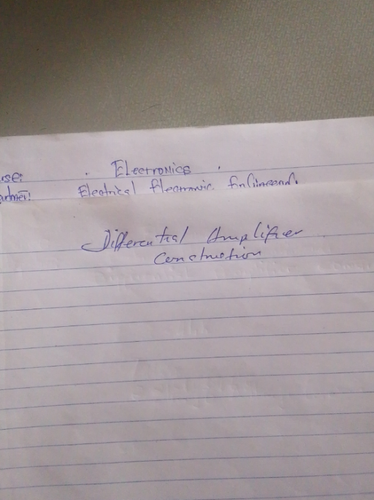 use: Electronics
artment: Electrical Electronic Engineering.
Differential Amplifier
Construction